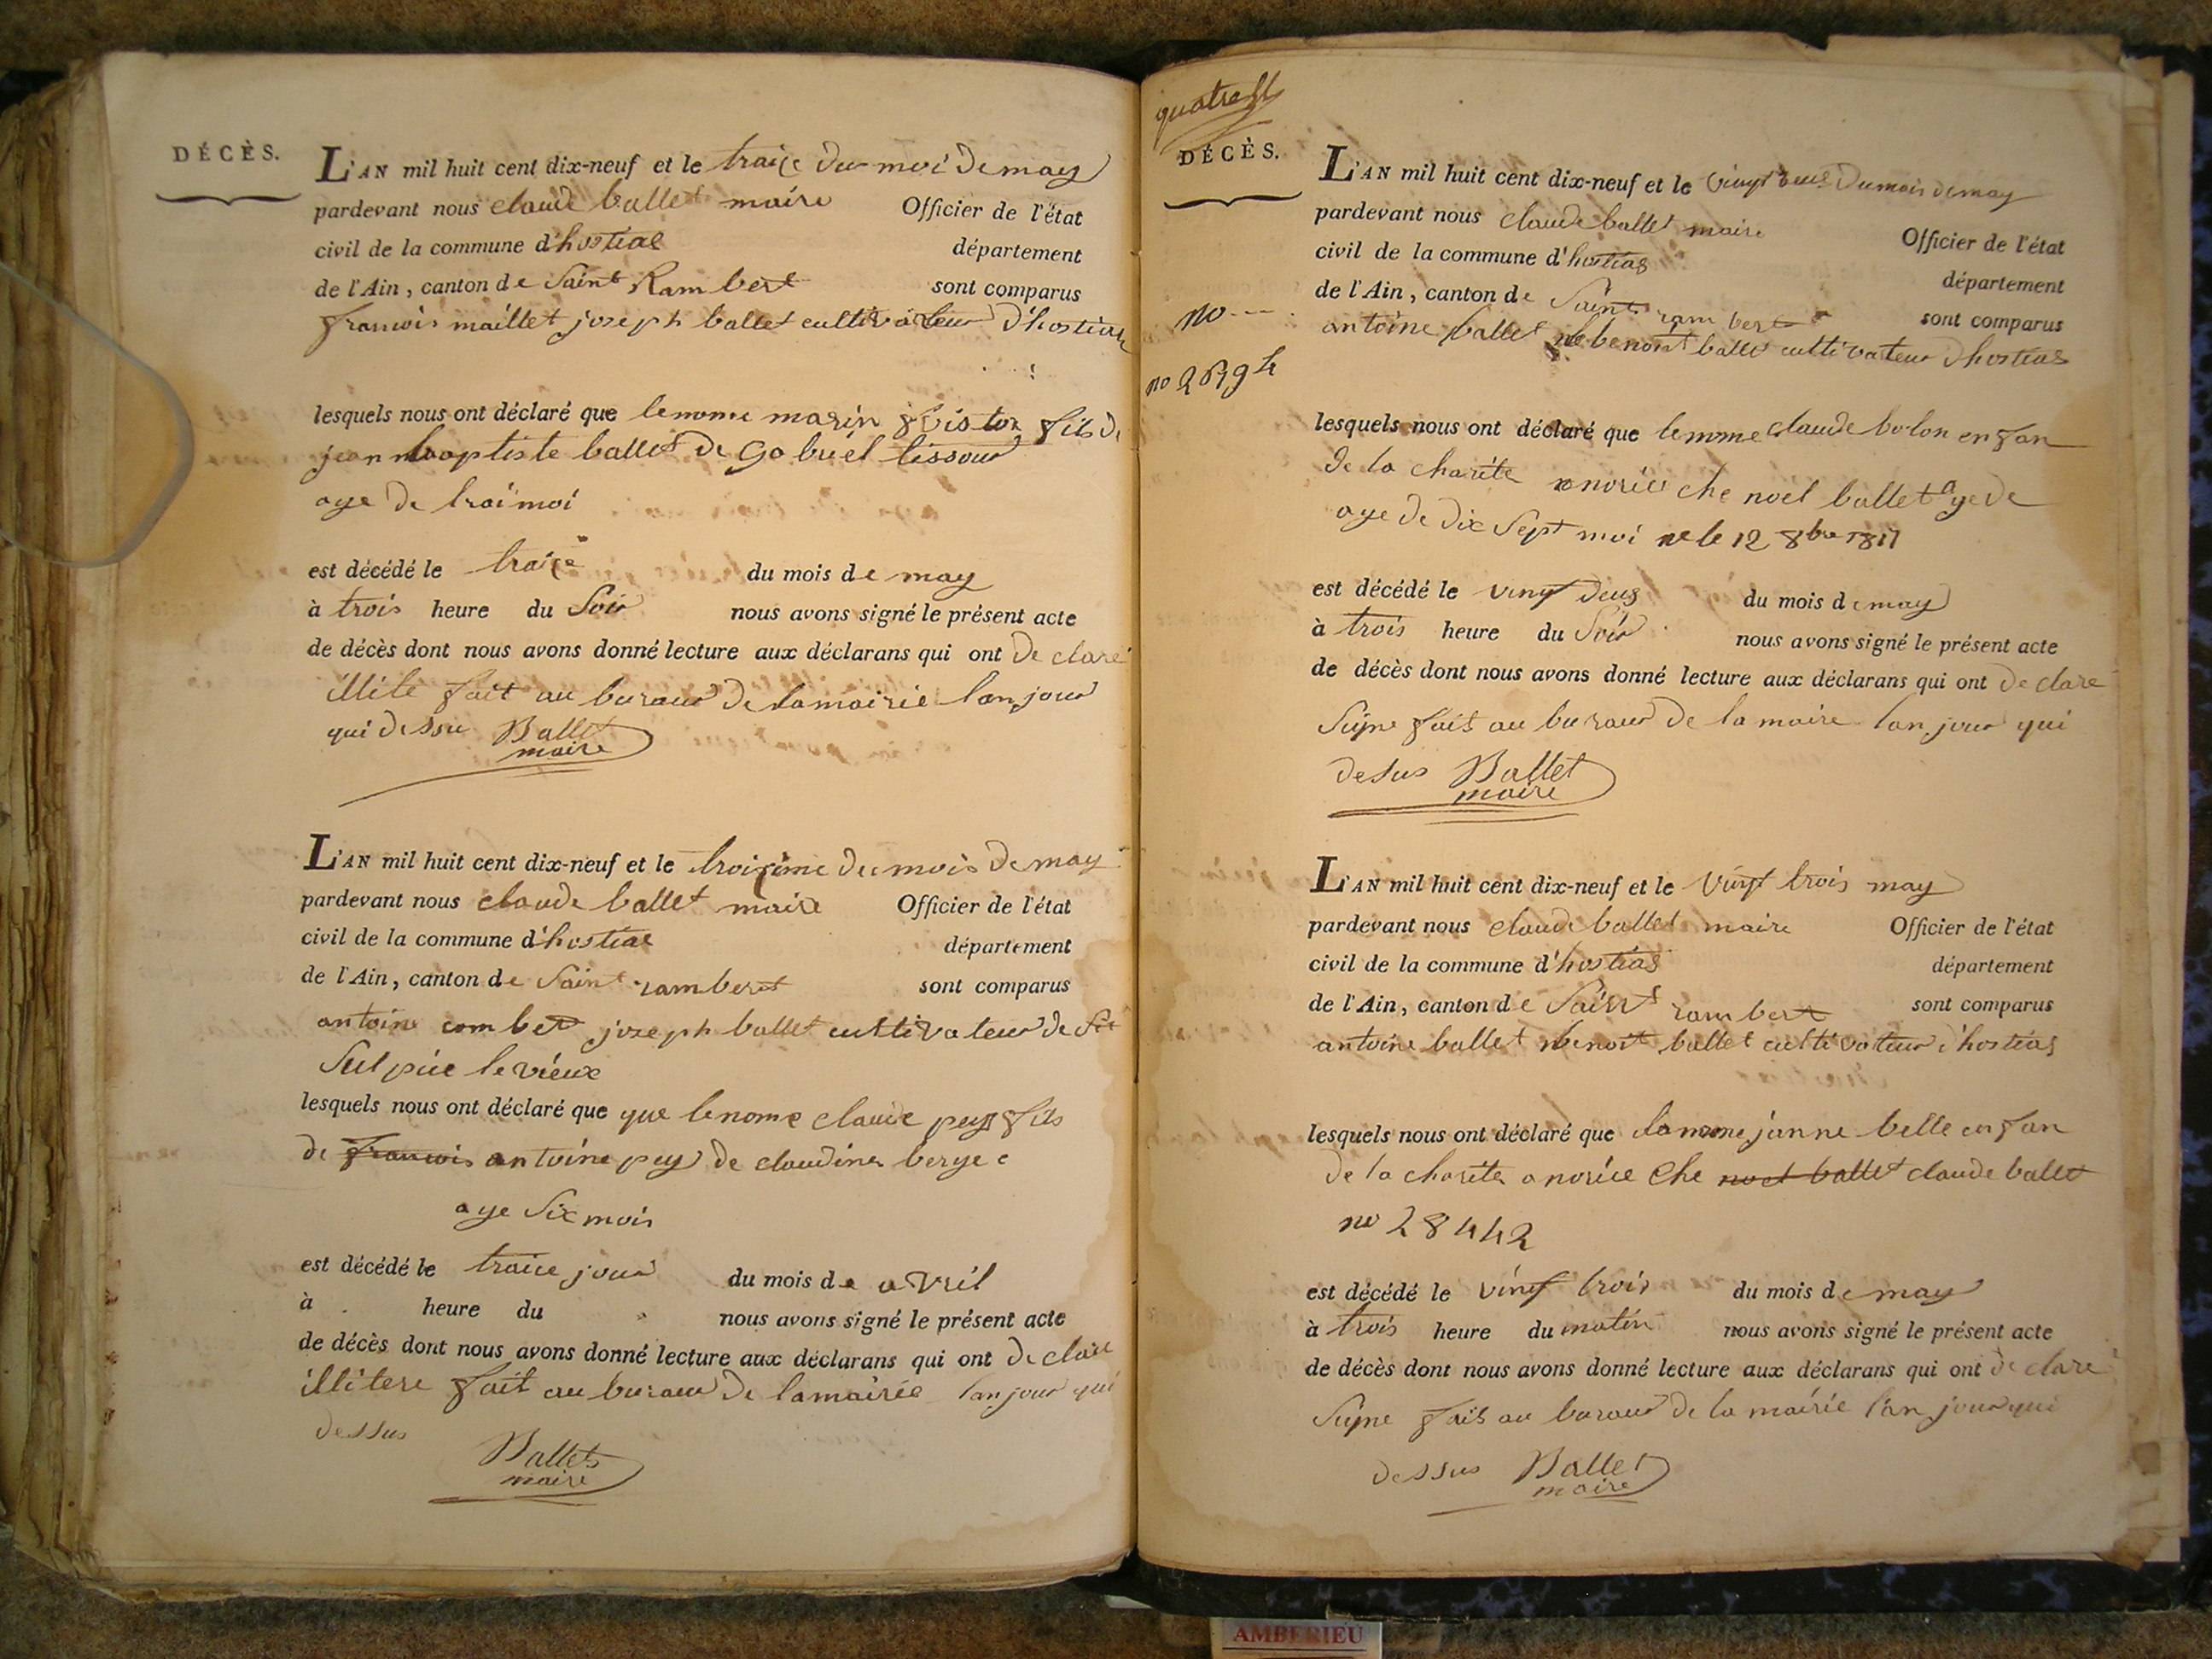 DÉCÈS.
L'AN mil huit cent dix-neuf et le traize du moi de may
pardevant nous claude ballet maire Officier de l'état
civil de la commune d'hostias département
de l'Ain, canton de Saint Rambert sont comparus
francois maillet joseph ballet cultivateur d'hostias
lesquels nous ont déclaré que lenomme marin fils de
jean baptiste ballet De gabriel tissour
age de traimoi
est décédé le traize du mois de may
à trois heure du Soir nous avons signé le présent acte
de décès dont nous avons donné lecture aux déclarans qui ont De clare
illite fait au buraur De lamairie lan jour
qui dessu Ballet
maire
L'AN mil huit cent dix-neuf et le troizime du mois De may
pardevant nous claude ballet maire Officier de l'état
civil de la commune d'hostias département
de l'Ain, canton de Saint rambert sont comparus
antoine combet joseph ballet cultivateur de St
Sulpice le vieux
lesquels nous ont déclaré que que lenome claude pey fils
de francois antoine pey de claudine berge
age Six mois
est décédé le traize jour du mois de avril
à heure du nous avons signé le présent acte
de décès dont nous avons donné lecture aux déclarans qui ont De clare
illitere fait au buraur De lamairie lan jour qui
dessus
Ballet
maire
DÉCÈS.
L'AN mil huit cent dix-neuf et le vingt deus Du mois de may
pardevant nous claude ballet maire Officier de l'état
civil de la commune d'hostias département
de l'Ain, canton de Saint rambert sont comparus
no
antoine ballet benoit ballet cultivateur d'hostias
no
lesquels nous ont déclaré que lenome claude bolon enfan
de la charite norice che noel ballet age de
age de dix Sept moi ne le 12 8bre 1817
est décédé le vingt deus du mois de may
à trois heure du Soir nous avons signé le présent acte
de décès dont nous avons donné lecture aux déclarans qui ont De clare
Signe fait au buraur de la maire lan jour qui
desus Ballet
maire
L'AN mil huit cent dix-neuf et le vingt trois may
pardevant nous claude ballet maire Officier de l'état
civil de la commune d'hostias département
de l'Ain, canton de Saint rambert sont comparus
antoine ballet benoit ballet cultivateur d'hostias
lesquels nous ont déclaré que janne belle enfan
de la charite a norice che noel ballet claude ballet
no 28442
est décédé le vingt trois du mois de may
à trois heure du matin nous avons signé le présent acte
de décès dont nous avons donné lecture aux déclarans qui ont de clare
Signe fait au buraur de la mairie l'an jour qui
dessus Ballet
maire
AMBERIEU